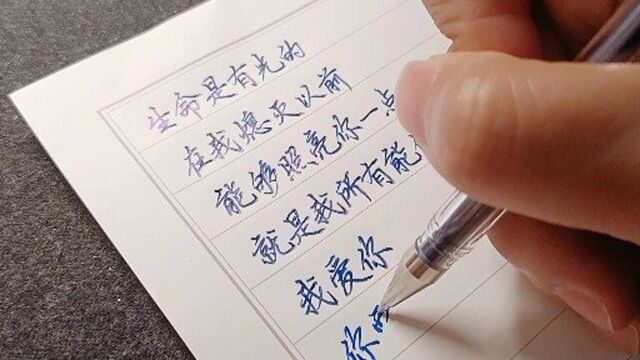 生命是有光的
在我熄灭以前
能够照亮你一点
就是我所有能
我爱你
你